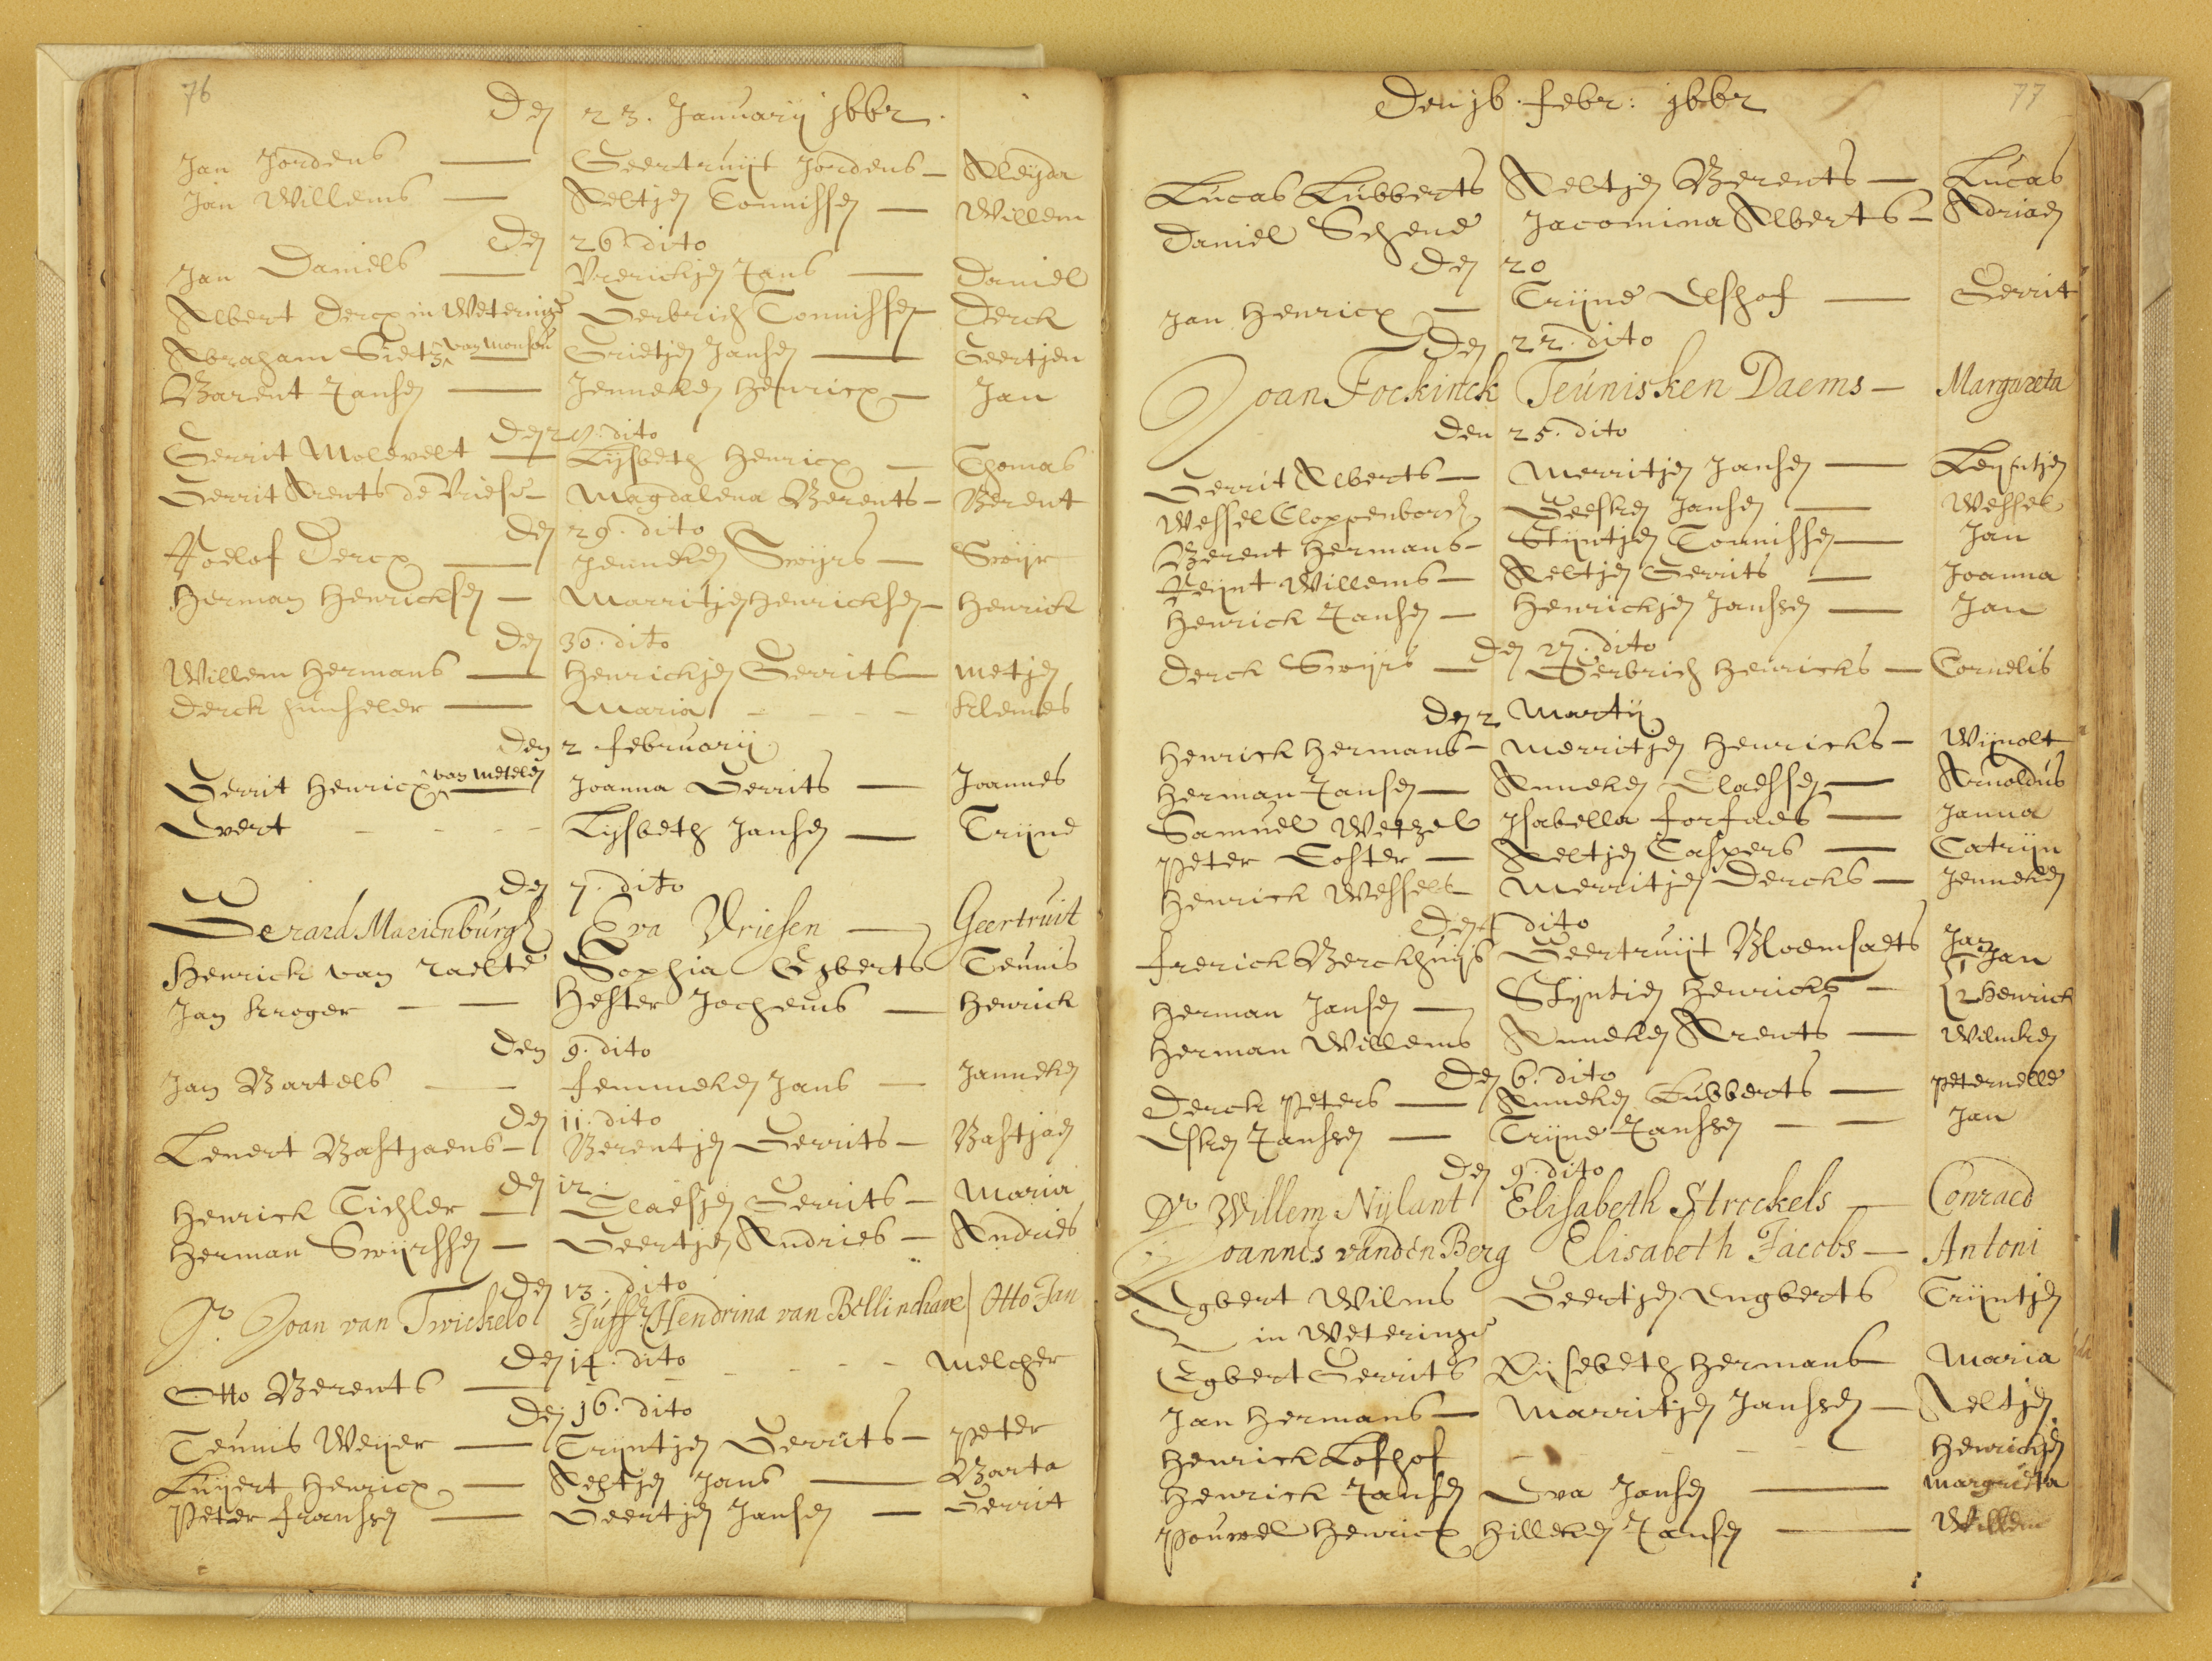 76
Den 23. Januarij 1662.
Jan Jordens — Geertruijt Jordens — Aleijda
Jan Willems — Aeltjen Tonnissen — Willem
Den 26. dito
Jan Daniels — Vrerickjen Jans — Daniel
Albert Dercx in Weteringe Gerbrich Tonnissen Derck
Abraham Sietz van Monsou — Grietjen Jansen — Geertjen
Barent Jansen — Jenneken Henricx — Jan
Den 27. dito
Gerrit Molevelt — Lijsbeth Henricx — Thomas
Gerrit Arents de Vriese — Magdalena Berents — Berent
Den 29. dito
Roelof Dercx — Jenneken Swijrs — Swijr
Herman Henricksen — Marritjen Henricksen — Henrick
Den 30. dito
Willem Hermans — Henrickjen Gerrits — Metjen
Derck — Maria - - - - Klemes
Den 2. february
Gerrit Henricx van Metelen — Joanna Gerrits — Joannes
Evert - - - - Lijsbeth Jansen — Trijne
Den 7. dito
Gerard Marienburgh Eva Vriesen — Geertruit
Henrick van Raelte Sophia Egberts Teunis
Jan Kroger — — Hester Jochems — Henrick
Den 9. dito
Jan Bartels — femmeken Jans — Janneken
Den 11. dito
Lenert Bastjaens — Berentjen Gerrits — Bastjaen
Den 12.
Henrick Tichler — Claesjen Gerrits — Maria
Herman Swijrssen — Geertjen Andries — Andries
Den 13. dito
Jr. Joan van Twickelo Juffr Hendrina van Bellinchave Otto Jan
Den 14. dito
Otto Berents — - - - - Melcher
Den 16. dito
Teunis Weijer — Trijntjen Gerrits — Peter
Luijert Henricx — Aeltjen Jans — Barta
Peter franssen — Geertjen Jansen — Gerrit
77
Den 16. febr: 1662
Lucas Lubberts Aeltjen Berents — Lucas
Daniel Schene Jacomina Alberts — Adriaen
Den 20
Jan Henricx — Trijne Elshof — Gerrit
Den 22. dito
Joan Fockinck Teunisken Daems — Margareta
Den 25. dito
Gerrit Alberts — Merritjen Jansen — Leijntjen
Wessel Cloppenborch Geesken Jansen — Wessel
Berent Hermans — Stijntjen Tonnissen — Jan
Reijnt Willems — Aeltjen Gerrits — Joanna
Henrick Jansen — Henrickjen Janssen — Jan
Den 27. dito
Derck Swijrs — Gerbrich Henricks — Cornelis
Den 2 Martij
Henrick Hermans — Merritjen Henricks — Wijnolt
Herman Jansen — Anneken Claessen — Arnoldus
Samuel Wetzel Jsabella forfaes — Janna
Peter Coster — Aeltjen Caspers — Catrijn
Henrick Wessels — Merritjen Dercks — Jenneken
Den 4 dito
frerick Berckhuijs Geertruijt Bloemsaets Jan
Herman Jansen — Stijntien Henricks — { 1 Jan
2 Henrick
Herman Willems Anneken Arents — Wilmken
Den 6. dito
Derck Peters — Anneken Lubberts — Peternelle
Esken Janssen — Trijne Janssen — — Jan
Den 9. dito
Dr. Willem Nijlant Elisabeth Strockels — Conraed
Joannes vanden Berg Elisabeth Jacobs — Antoni
Egbert Wilms Geertjen Engberts Trijntjen
in Weteringe
Egbert Gerrits Lijsebeth Hermans Maria
Jan Hermans — Marritjen Janssen — Aeltjen
Henrick Lofhof - - - - Henrickjen
Henrick Jansen Eva Jansen — Margrieta
Pouwel Henricx Hilleken Jansen — Willem